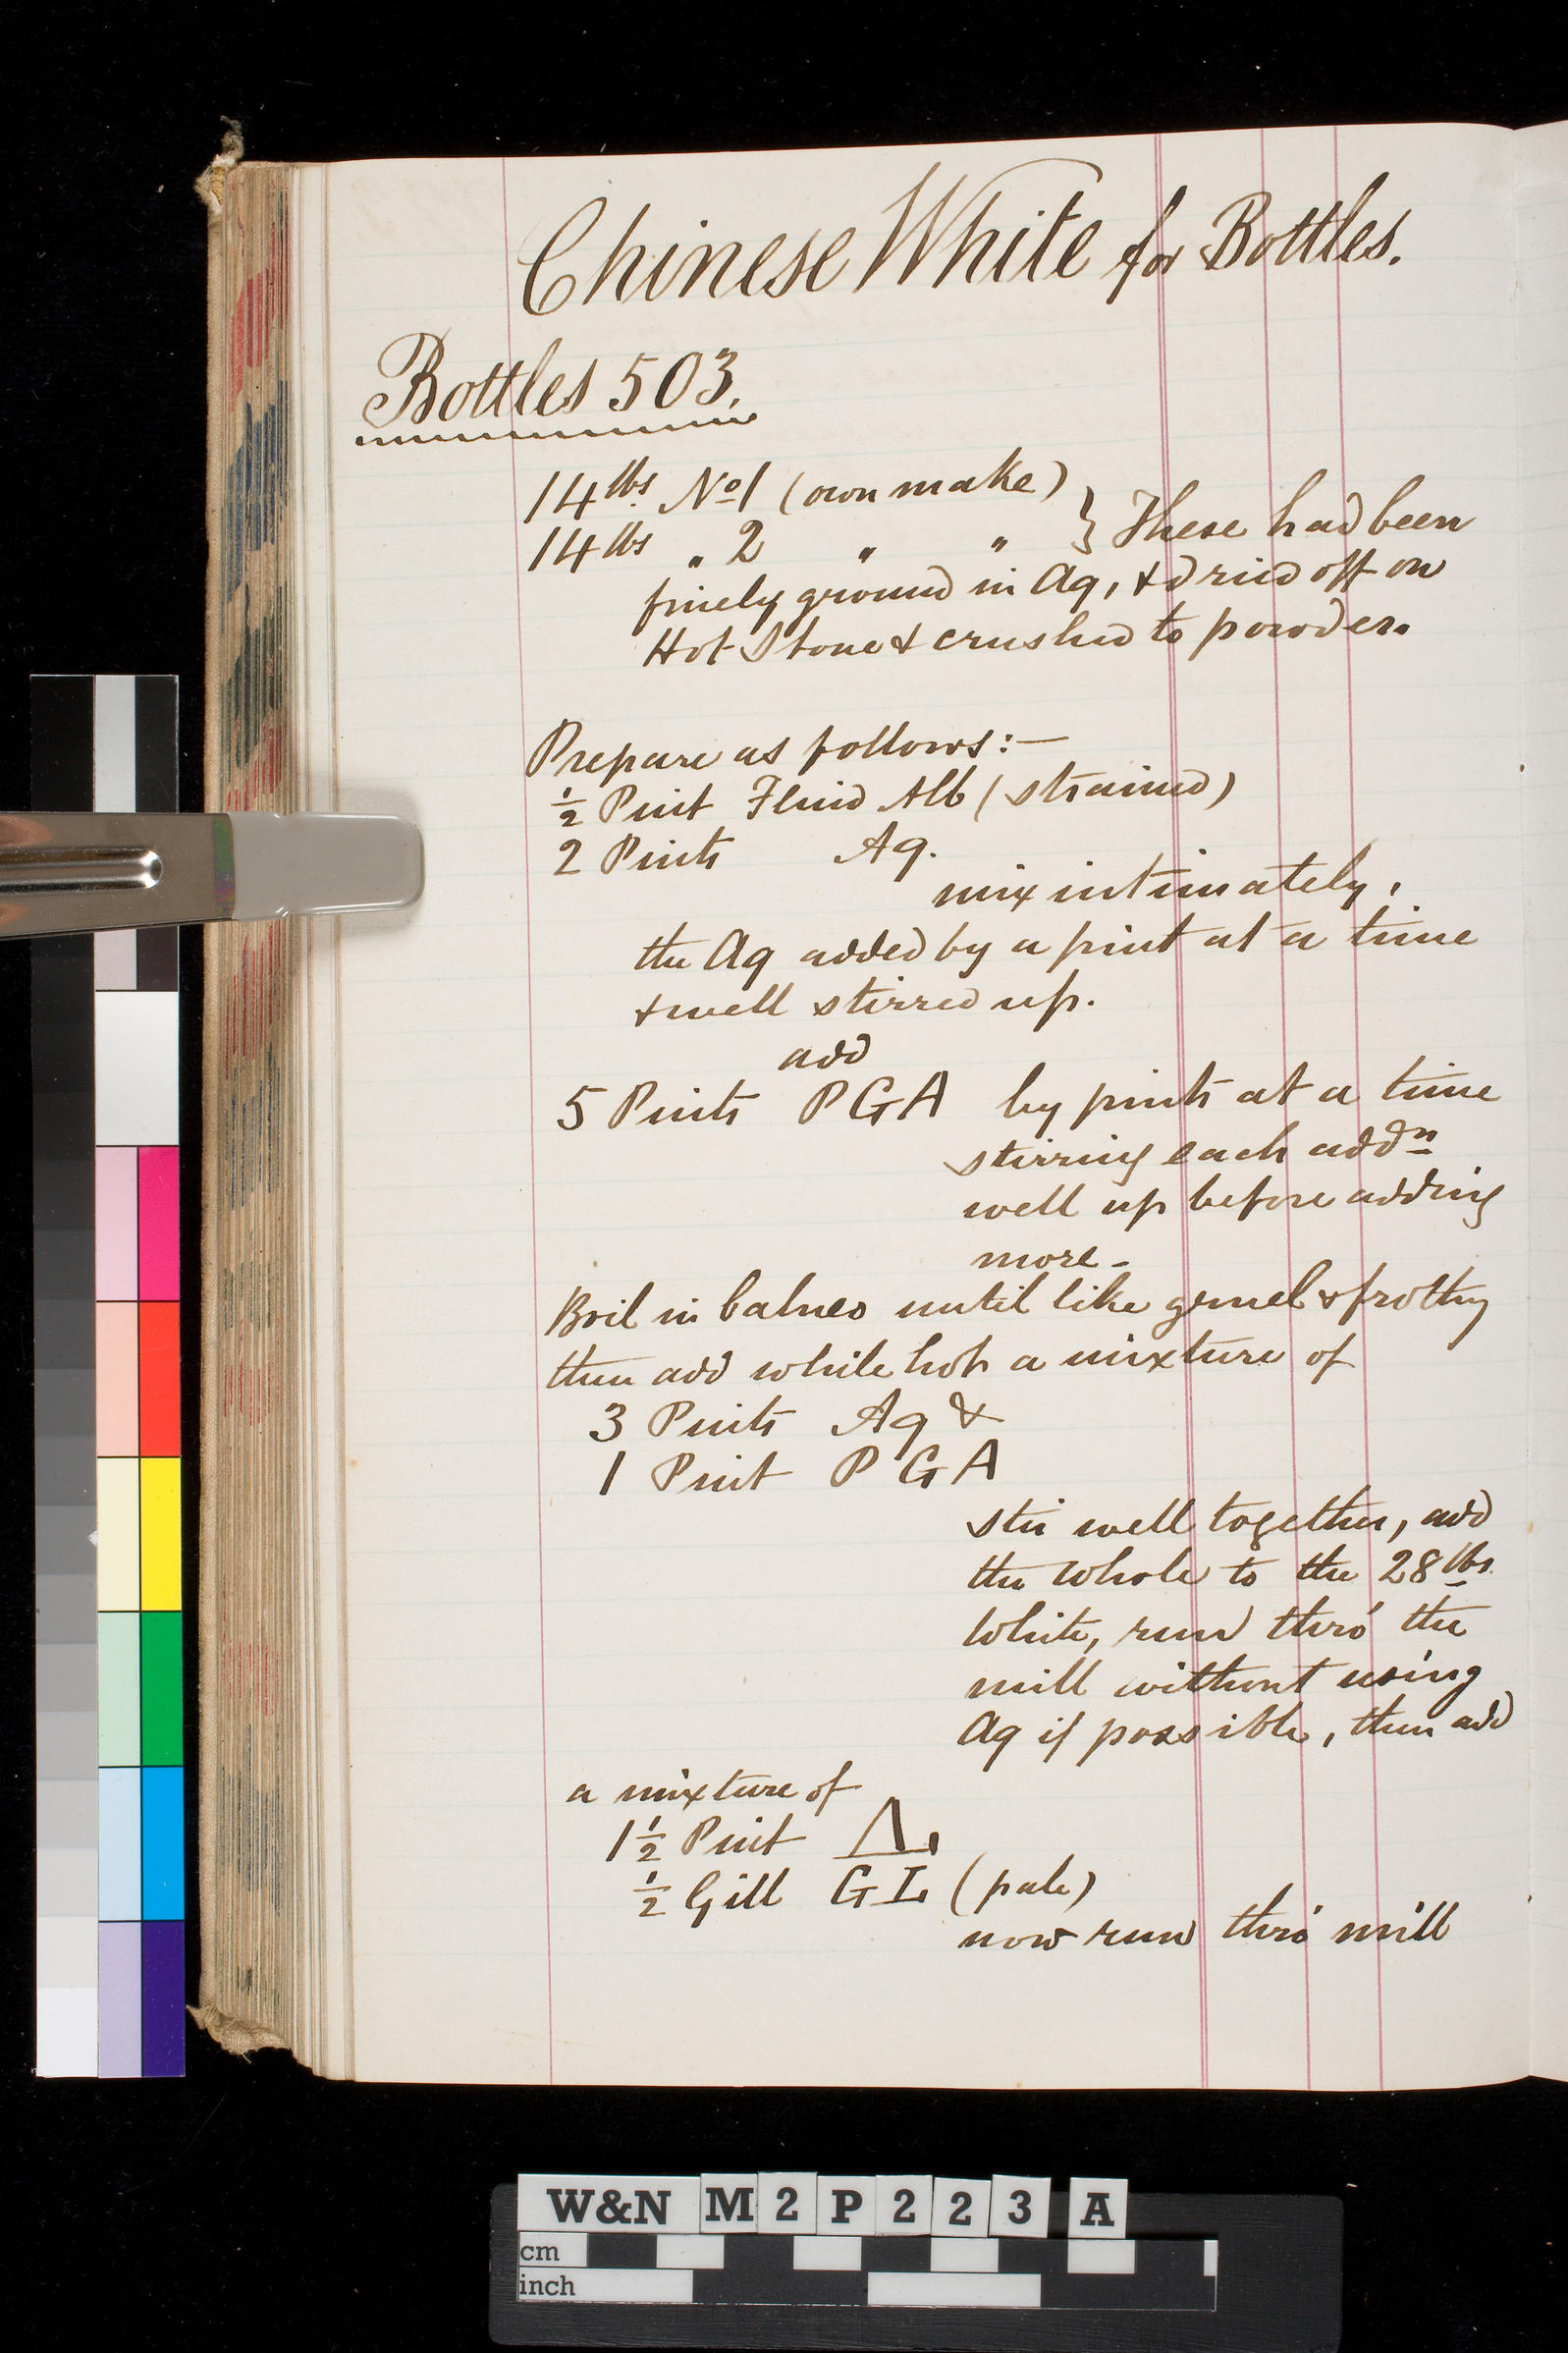 Chinese White for Bottles.
Bottles 503.
14 lbs No 1 (own make)
14 lbs " 2 " " } These had been
finely ground in Aq, & dried off on
Hot Stone & crushed to powder.
Prepare as follows:—
½ Pint Fluid Alb (strained)
2 Pints Aq.
mix intimately,
the Aq added by a pint at a time
& well stirred up.
add
5 Pints P G A by pints at a time
stirring each addn
well up before adding
more -
Boil in balneo until like gruel & frothy
then add while hot a mixture of
3 Pints Aq &
1 Pint P G A
stir well together, add
the whole to the 28 lbs
White, run thro' the
mill without using
Aq if possible, then add
a mixture of
1½ Pint
½ Gill G L (pale)
now run thro' mill
W&N M2P223A
cm
inch